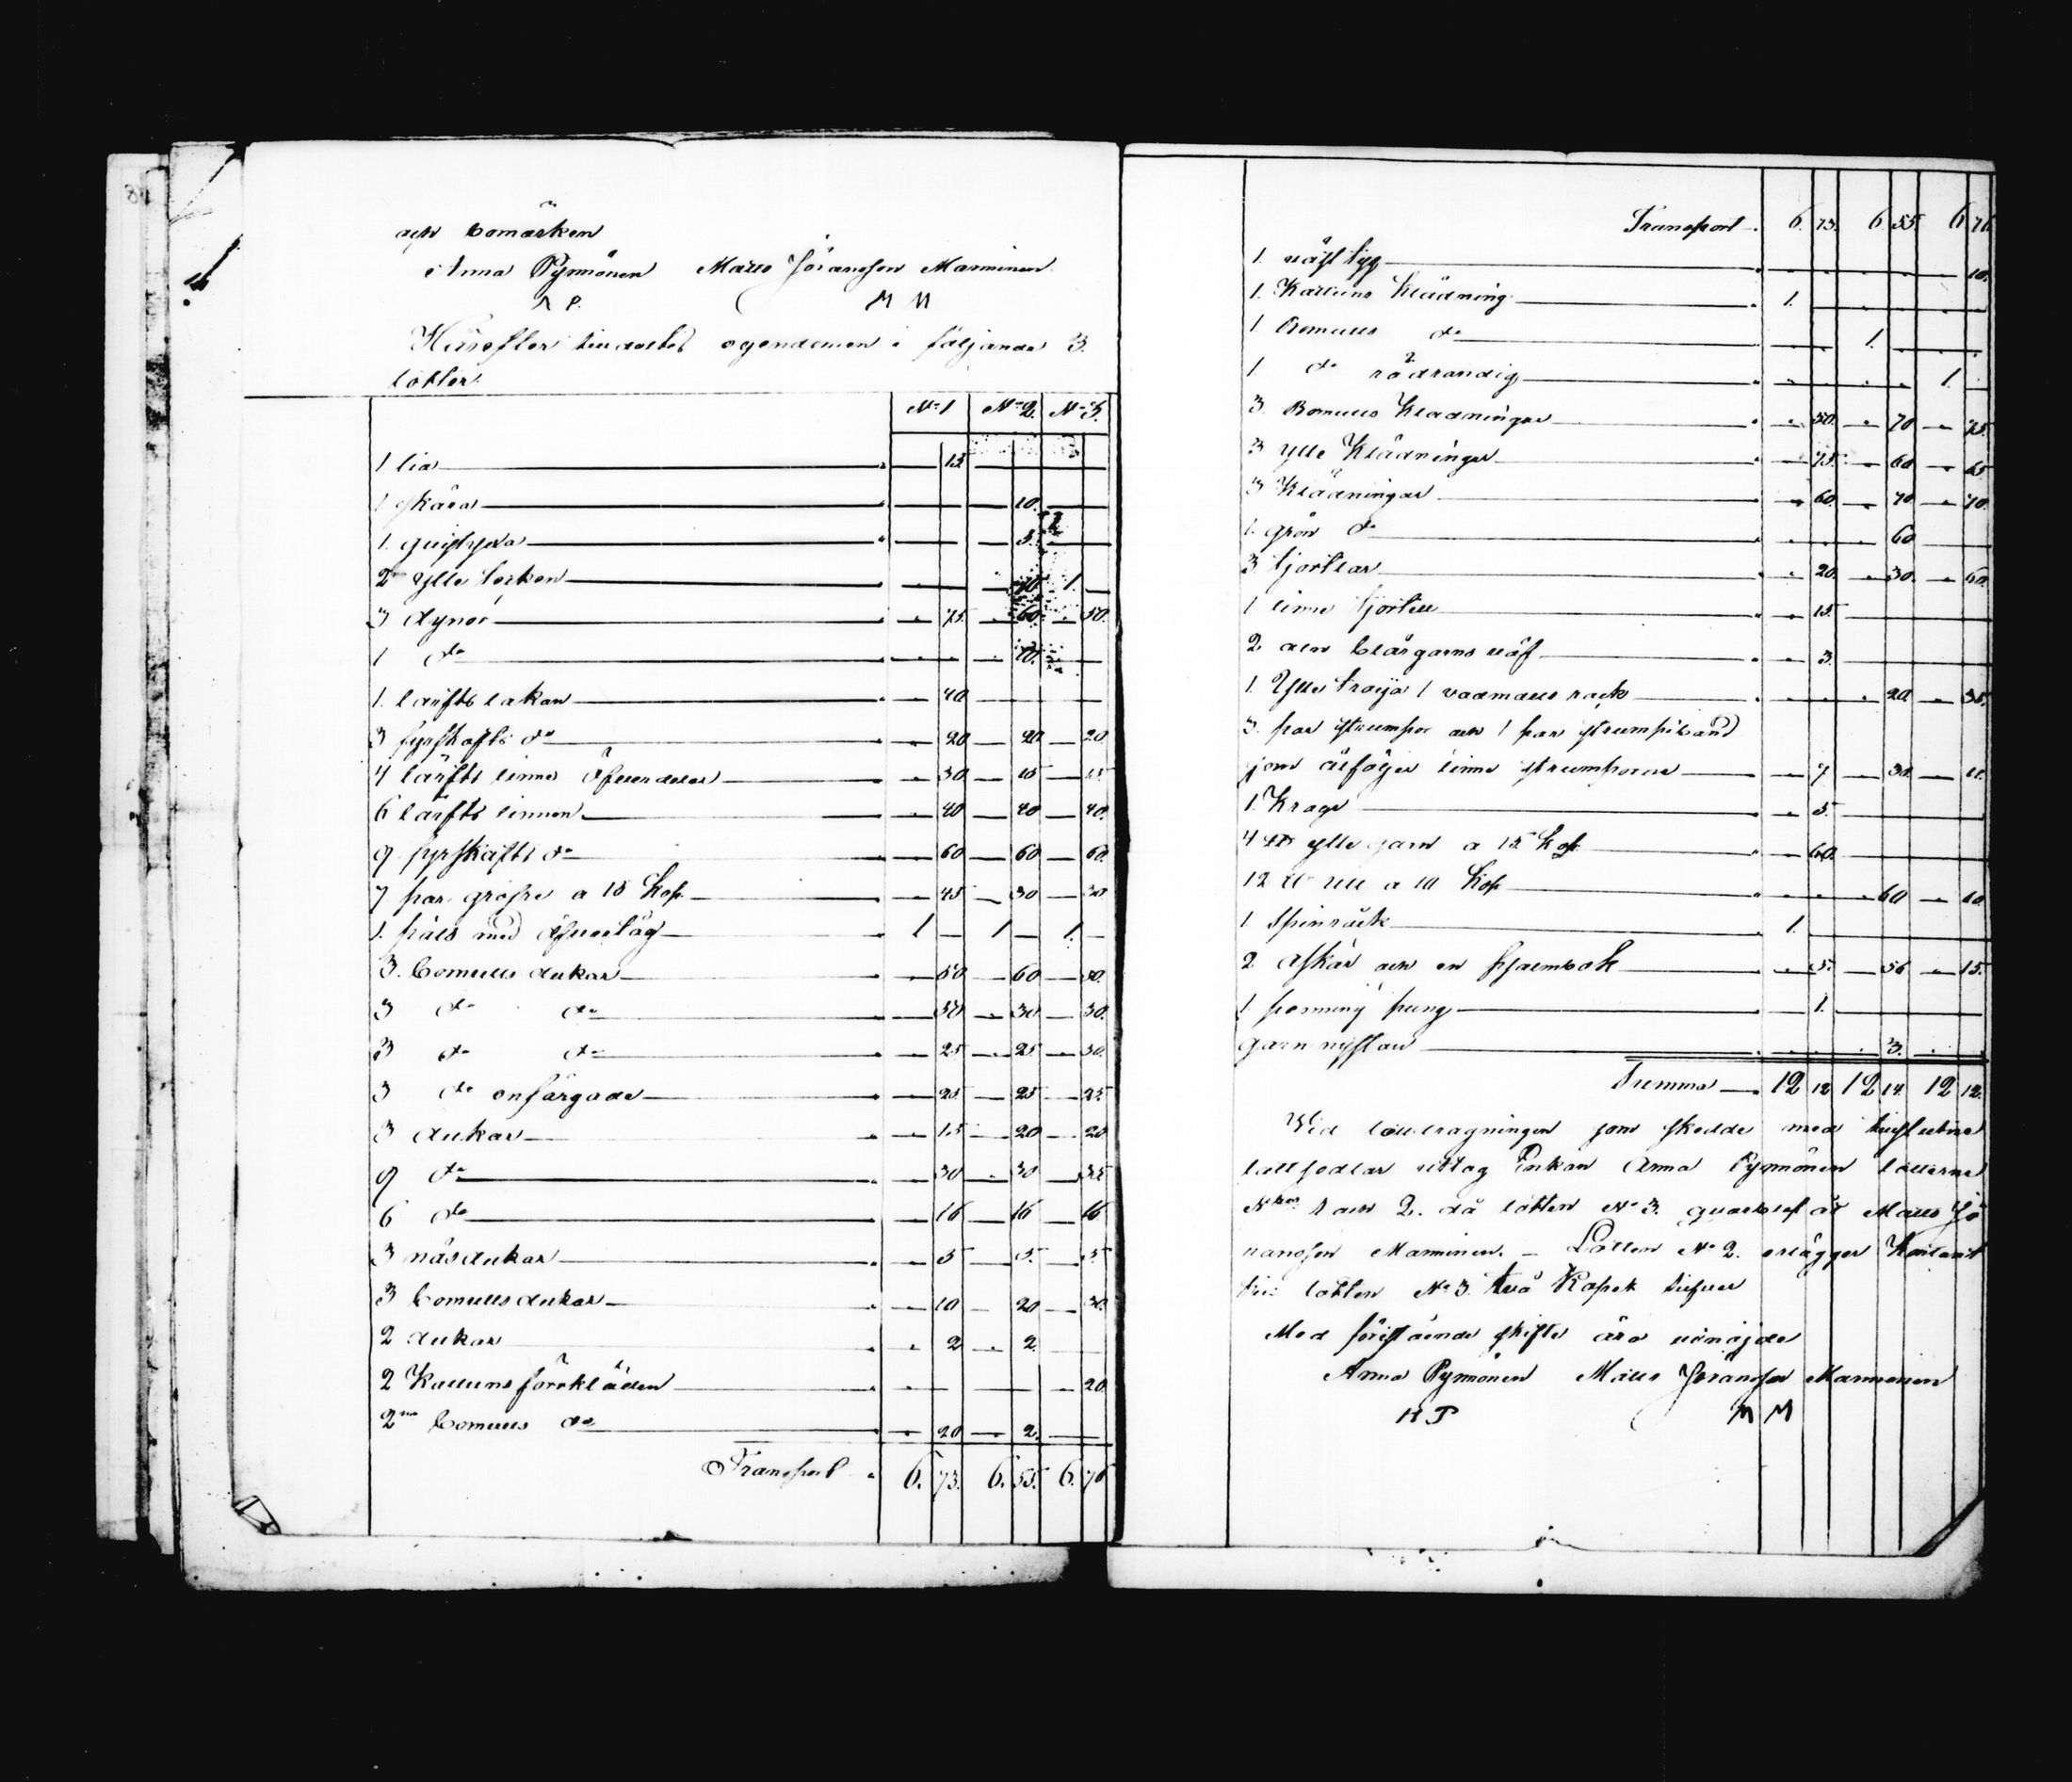 och bomärken
Anna Pynnönen Matts Jöransson Manninen
A P. M M
Härefter tillades egendomen i följande 3.
lotter.
No 1 No 2. No 3.
1 lia 15
1 skära 10.
1. 5.
2ne Ylle 10 1.
3 dynor 75. 60. 50.
1 do 10.
1. lärfts lakan 40
3 fyrskafts do 20 20 20
4 lärfts linne öfverdelar 30 15 15
6 lärfts linnen 40 40 40.
9. fyrskafts do 60 60 60.
7 par a 15 Kop. 45 30 30
1. päls med öfvertåg 1 1 1.
3. bomulls dukar 50 60 50.
3 do do 30 30. 30.
3 do do 25 25 30.
3 do enfärgade 25 25 25.
3 dukar 15 20 20
9 do 30 30 35
6 do 16 16 16
3 näsdukar 5 5. 5.
3 bomullsdukar 10 20 30.
2 dukar 2 2.
2 Kattuns förkläden 20
2ne bomulls do 20 2.
Transport 6. 73. 6. 55. 6. 76
Transport 6. 73. 6 55. 6 76
1. 10.
1. Kattuns klädning 1.
1 Bomulls do 1.
1 do rödrandig 1.
3. Bomulls Klädningar 50. 70 75.
3 ylle Klädningar 75. 60 65
3 Klädningar 60. 70 70.
1. grön do 60
3 kjortlar 20. 30. 60.
1 linne kjortill 15
2 aln blårgarns väf 3.
1. Ylle tröija 1 vadmals rock 20 35.
3. par strumpor och 1 par strumpeband
som åtföljer linne strumporna 7 30.
1. Krage 5.
4 ylle garn a 15 kop 60.
12 ull a 10 Kop 60 60
1. Spinråck 1.
2 askar och en psalmbok 5. 56 15.
1 penning pung 1.
garn nystan 3.
Summa 12 12 12 14. 12 12.
Vid lottdragningen som skedde med tillslutna
lottsedlar uttog Enkan Anna Pynnönen lotterne
No 1 och 2. då lotten No 3. qvarblef åt Matts Jö
ransson Manninen. Lotten No 2. erlägger Kontant
till lotten No 3. två Kopek silfver
Med förestående skifte äro vi nöjde
Anna Pynnönen Matts Jöransson Manninen
A P M M